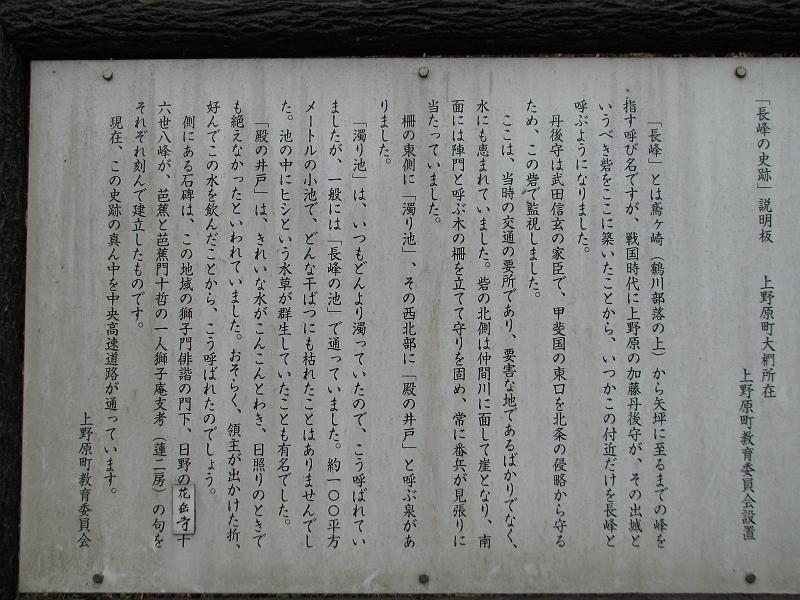 「長峰の史跡」説明板　上野原町大椚所在
上野原町教育委員会設置
「長峰」とは鳶ヶ崎（鶴川部落の上）から矢坪に至るまでの峰を
指す呼び名ですが、戦国時代に上野原の加藤丹後守が、その出城と
いうべき砦をここに築いたことから、いつかこの付近だけを長峰と
呼ぶようになりました。
丹後守は武田信玄の家臣で、甲斐国の東口を北条の侵略から守る
ため、この砦で監視しました。
ここは、当時の交通の要所であり、要害な地であるばかりでなく、
水にも恵まれていました。砦の北側は仲間川に面して崖となり、南
面には陣門と呼ぶ木の柵を立てて守りを固め、常に番兵が見張りに
当たっていました。
柵の東側に「濁り池」、その西北部に「殿の井戸」と呼ぶ泉があ
りました。
「濁り池」は、いつもどんより濁っていたので、こう呼ばれてい
ましたが、一般には「長峰の池」で通っていました。約一〇〇平方
メートルの小池で、どんな干ばつにも枯れたことはありませんでし
た。池の中にヒシという水草が群生していたことも有名でした。
「殿の井戸」は、きれいな水がこんこんとわき、日照りのときで
も絶えなかったといわれていました。おそらく、領主が出かけた折、
好んでこの水を飲んだことから、こう呼ばれたのでしょう。
側にある石碑は、この地域の獅子門俳諧の門下、日野の花岳寺十
六世八峰が、芭蕉と芭蕉門十哲の一人獅子庵支考（蓮二房）の句を
それぞれ刻んで建立したものです。
現在、この史跡の真ん中を中央高速道路が通っています。
上野原町教育委員会